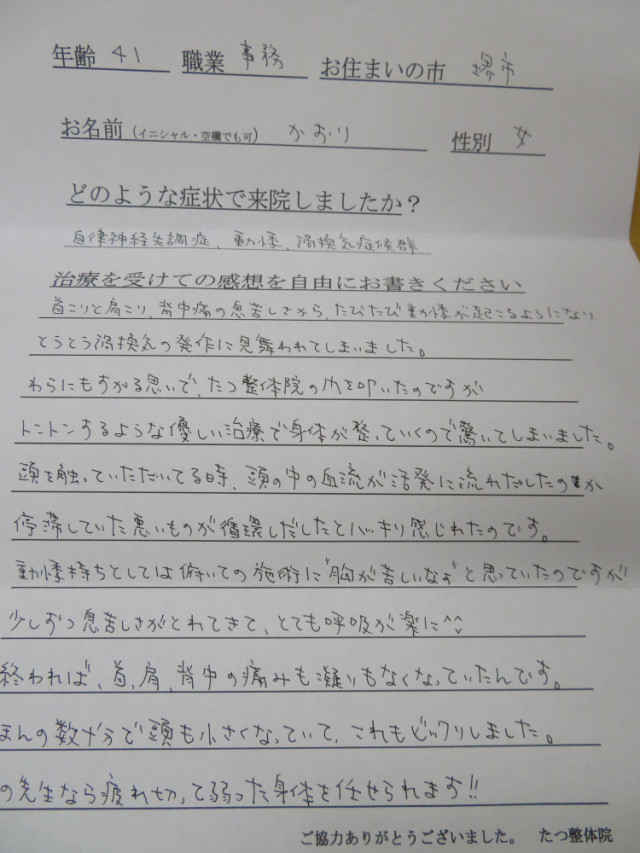 年齢 41 職業 事務 お住まいの市 堺市
お名前（イニシャル・空欄でも可） かおり 性別 女
どのような症状で来院しましたか？
自律神経失調症、動悸、過換気症候群
治療を受けての感想を自由にお書きください
首こりと肩こり、背中痛の息苦しさから、たびたび動悸が起こるようになり
とうとう過換気の発作に見舞われてしまいました。
わらにもすがる思いで、たつ整体院の門を叩いたのですが
トントンするような優しい治療で身体が整っていくので驚いてしまいました。
頭を触っていただいてる時、頭の中の血流が活発に流れだしたのか
停滞していた悪いものが循環しだしたとハッキリ感じれたのです。
動悸持ちとしては俯いての施術に"胸が苦しいなぁ"と思っていたのですが
少しずつ息苦しさがとれてきて、とても呼吸が楽に^^
終われば、首、肩、背中の痛みも凝りもなくなっていたんです。
ほんの数十分で頭も小さくなっていて、これもビックリしました。
の先生なら疲れ切って弱った身体を任せられます!!
ご協力ありがとうございました。 たつ整体院